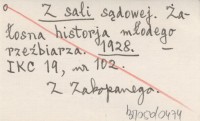 Z sali sądowej. Ża-
łosna historja młodego
rzeźbiarza. 1928.
IKC 19, nr 102.
Z Zakopanego.